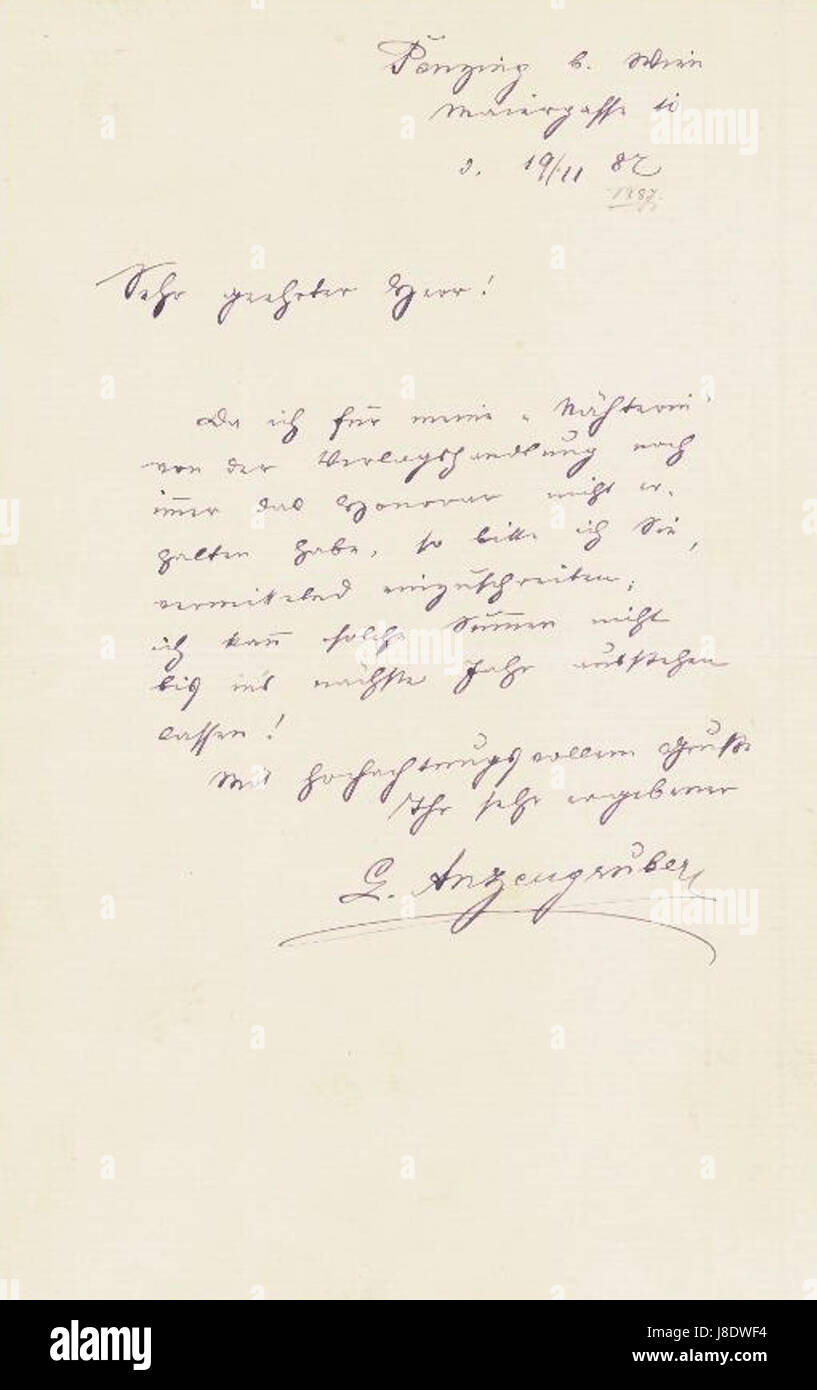 Penzing b. Wien
Maiergasse 11
d. 19/11 87
1887.
Sehr geehrter Herr!
Da ich für meine "Nähterin"
von der Verlagshandlung noch
immer das Honorar nicht er-
halten habe, so bitte ich Sie,
vermittelnd einzuschreiten;
ich kann solche Summen nicht
bis in's nächste Jahr ausstehen
lassen!
Mit hochachtungsvollem Gruße
Ihr sehr ergebener
L. Anzengruber
alamy
Image ID: J8DWF4
www.alamy.com